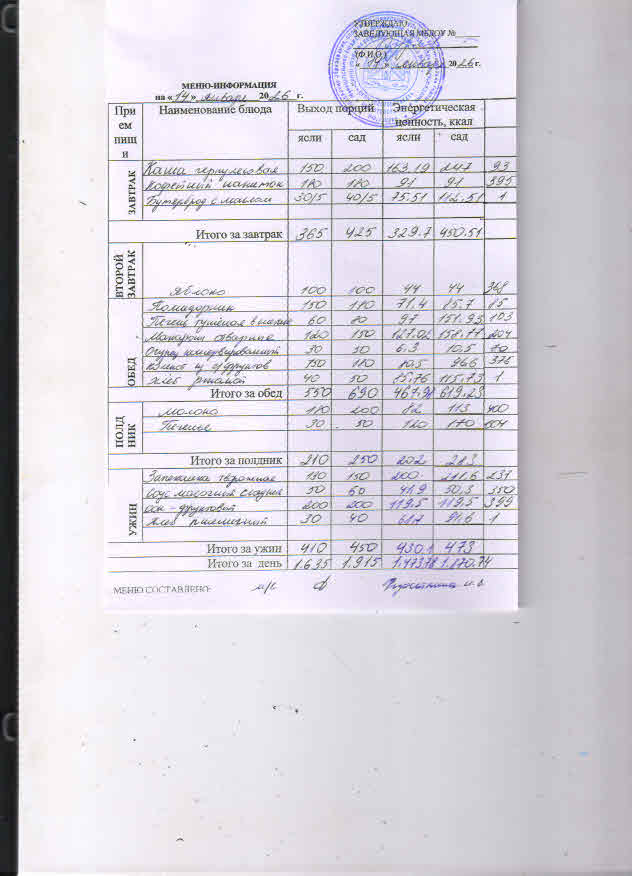 УТВЕРЖДАЮ:
ЗАВЕДУЮЩАЯ МБДОУ №
(Ф.И.О.)
января 2026 г.
МЕНЮ-ИНФОРМАЦИЯ
на « 14 » января 2026 г.
При ем пищ и Наименование блюда Выход порций Энергетическая ценность, ккал
ясли сад ясли сад
ЗАВТРАК
Каша геркулесовая 150 200 163.19 247 93
Кофейный напиток 180 180 91 91 395
Бутерброд с маслом 30/5 40/5 75.51 112.51 1
Итого за завтрак 365 425 329.7 450.51
ВТОРОЙ ЗАВТРАК
Яблоко 100 100 44 44 368
ОБЕД
150 180 71.4 85.7 85
Печень тушеная в 60 80 97 151.93 103
Макароны отварные 120 150 127.02 158.77 204
Огурец консервированный 30 50 6.3 10.5 70
Компот из с/фруктов 150 180 80.5 96.6 376
Хлеб ржаной 40 50 85.76 115.73 1
Итого за обед 550 690 467.98 619.23
ПОЛД НИК
Молоко 180 200 82 113 400
Печенье 30 50 120 170 604
Итого за полдник 210 250 202 283
УЖИН
Запеканка творожная 130 150 200. 211.6 237
Соус молочный сладкий 50 60 41.9 50.3 350
сок - фруктовый 200 200 119.5 119.5 399
Хлеб пшеничный 30 40 68.7 91.6 1
Итого за ужин 410 450 430.1 473
Итого за день 1.635 1.915 1.473.78 1.870.74
МЕНЮ СОСТАВЛЕНО: м/с